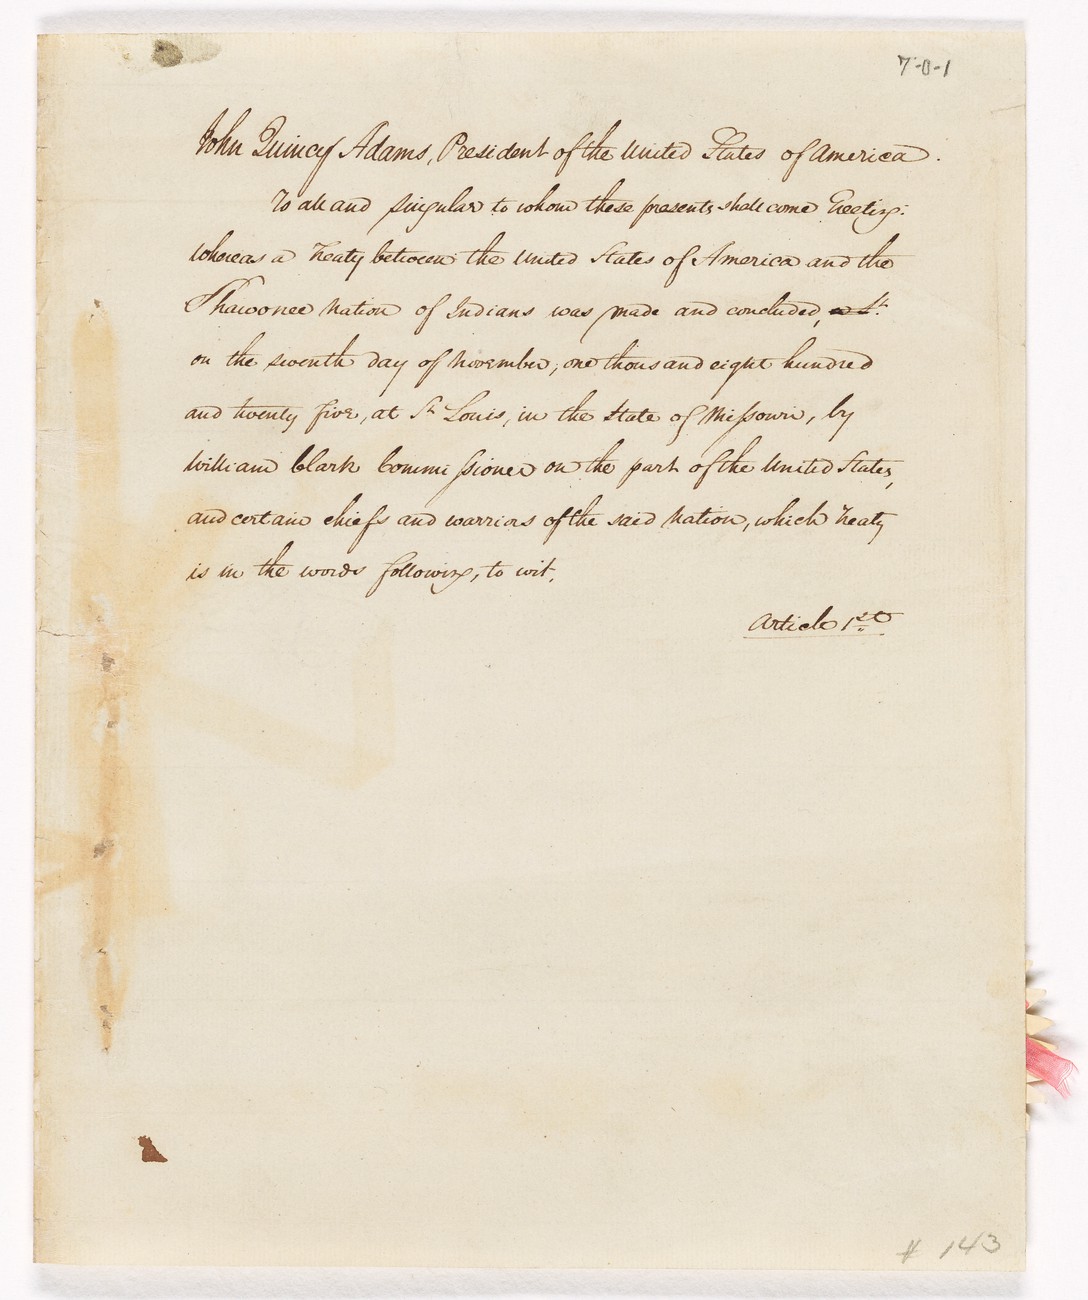 7-0-1
John Quincy Adams, President of the United States of America.
To all and singular to whom these presents shall come Greeting:
Whereas a Treaty between the United States of America and the
Shawonee Nation of Indians was made and concluded, a St.
on the seventh day of November, one thousand eight hundred
and twenty five, at St Louis, in the State of Missouri, by
William Clark Commissioner on the part of the United States,
and certain chiefs and warriors of the said Nation, which Treaty
is in the words following, to wit,
Article 1st
# 143